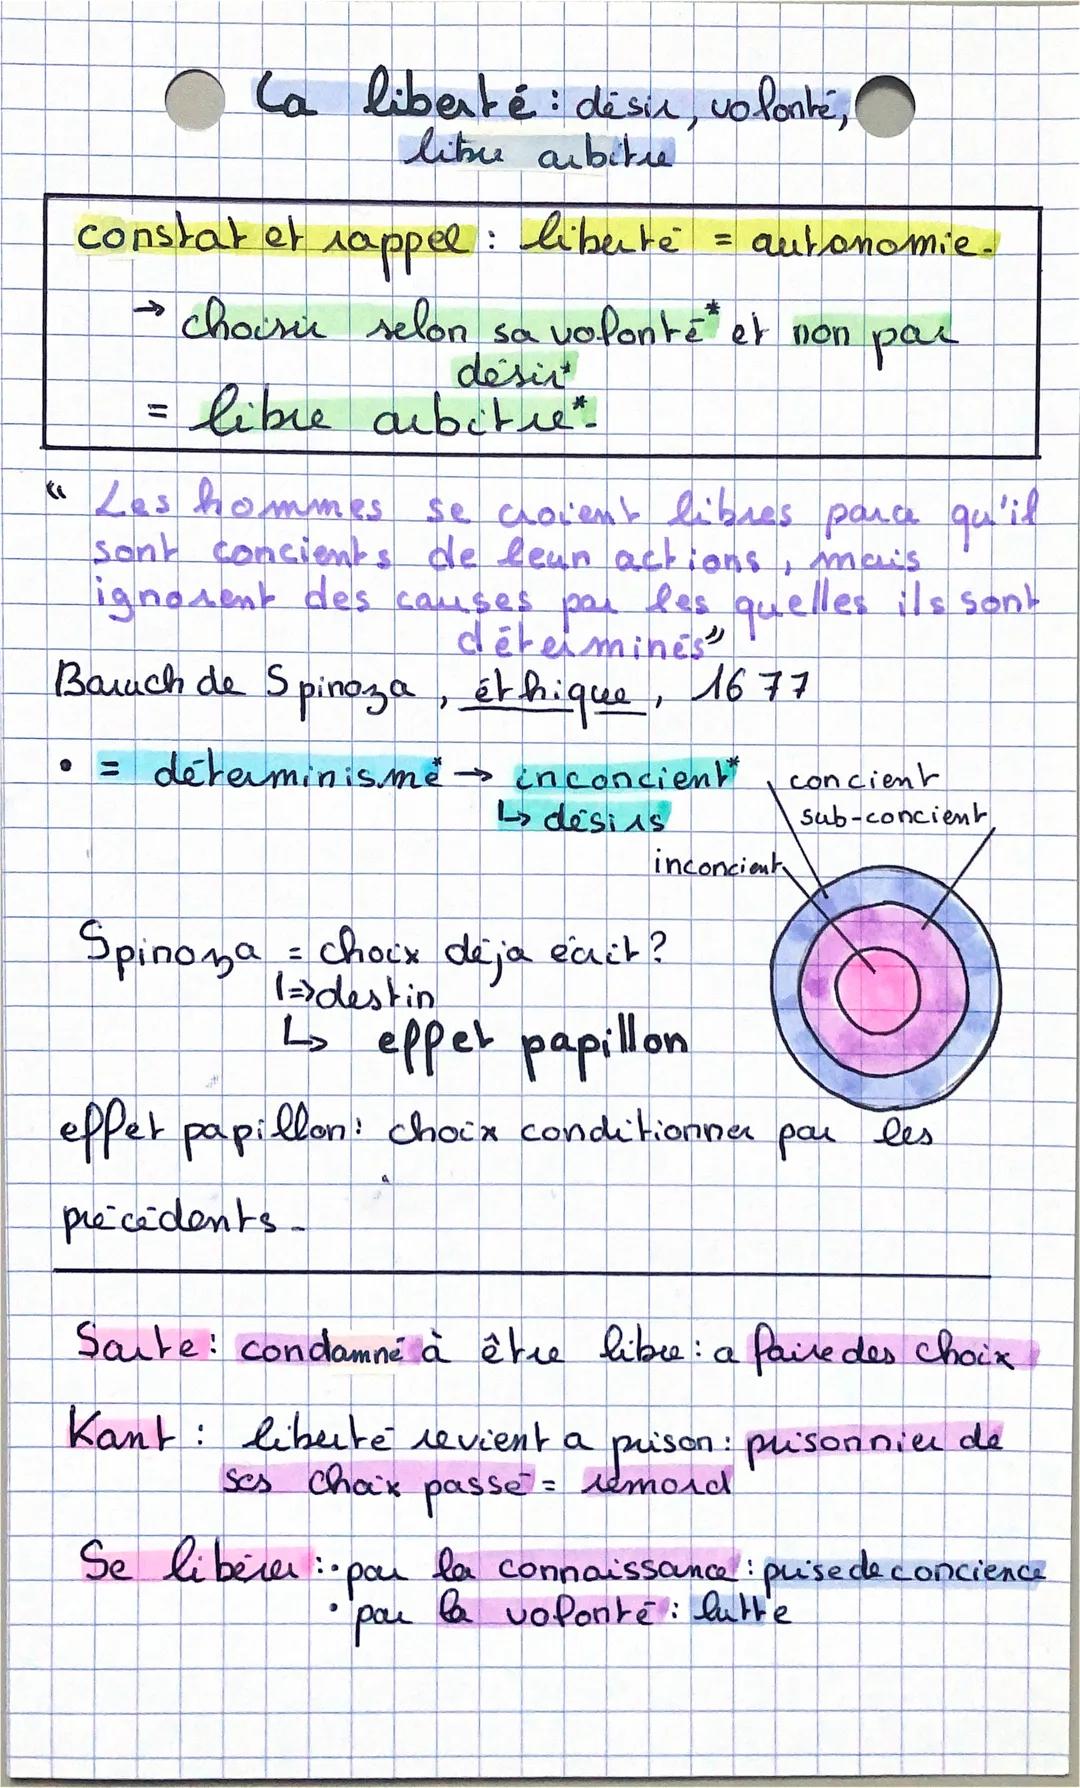 La liberté : désir, volonté,
libre arbitre
constat et rappel : liberté = autonomie.
→ choisir selon sa volonté* et non par
désir*
= libre arbitre*.
" Les hommes se croient libres parce qu'il
sont concients de leurs actions, mais
ignorent des causes par les quelles ils sont
déterminés"
Baruch de Spinoza, éthique, 1677
• = déterminisme* → inconcient*
↳ désirs
concient
sub-concient
inconcient
Spinoza = choix déja écrit ?
↳ destin
↳ effet papillon
effet papillon : choix conditionner par les
précédents.
Sartre : condamné à être libre : a faire des choix
Kant : liberté revient a prison : prisonnier de
ses choix passé = remord
Se libérer : • par la connaissance : prise de concience
• par la volonté : lutte